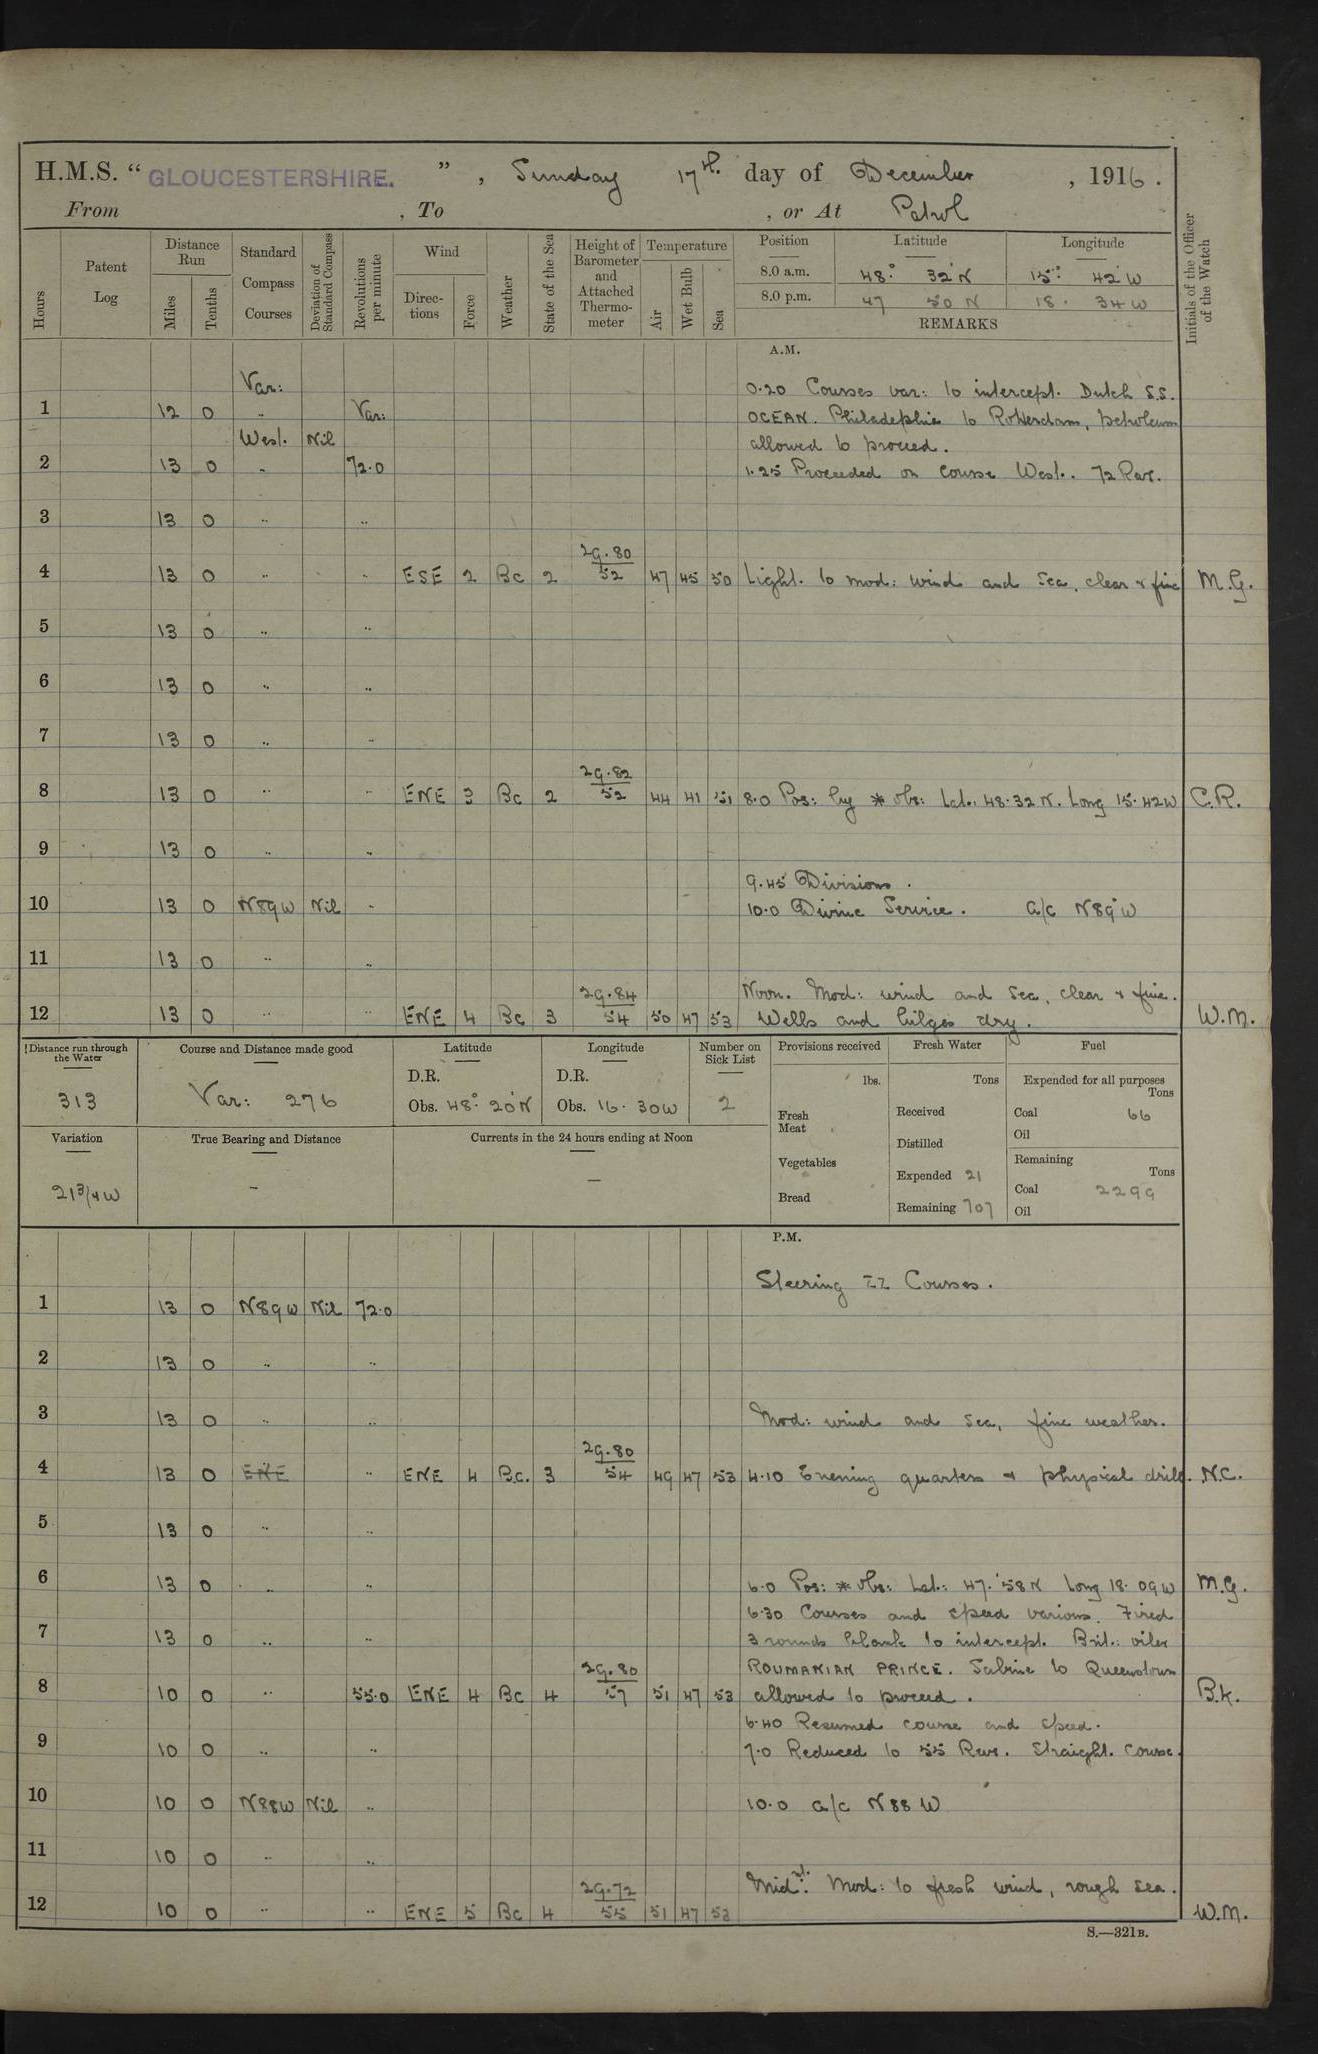 H.M.S. “ GLOUCESTERSHIRE. ” , Sunday 17th. day of December , 1916 .
From , To , or At Patrol
Hours
Patent Log
Distance Run
Miles
Tenths
Standard Compass Courses
Deviation of Standard Compass
Revolutions per minute
Wind
Directions
Force
Weather
State of the Sea
Height of Barometer and Attached Thermometer
Temperature
Air
Wet Bulb
Sea
Position Latitude Longitude
8.0 a.m. 48° 32' N 15° 42' W
8.0 p.m. 47 50 N 18 . 34 W
REMARKS
Initials of the Officer of the Watch
A.M.
Var: 0.20 Courses var: to intercept. Dutch S.S.
1 12 0 " Var: OCEAN. Philadelphia to Rotterdam, petroleum
West. Nil allowed to proceed.
2 13 0 " 72.0 1.25 Proceeded on course West. 72 Rev.
3 13 0 " "
29.80
4 13 0 " " ESE 2 Bc 2 52 47 45 50 Light. to mod: wind and sea, clear & fine M.G.
5 13 0 " "
6 13 0 " "
7 13 0 " "
29.82
8 13 0 " " ENE 3 Bc 2 52 44 41 51 8.0 Pos: by * obs: Lat. 48.32 N. Long 15.42 W C.R.
9 13 0 " "
9.45 Divisions .
10 13 0 N89W Nil " 10.0 Divine Service. a/c N89°W
11 13 0 " "
29.84 Noon. Mod: wind and sea, clear & fine.
12 13 0 " " ENE 4 Bc 3 54 50 47 53 Wells and bilges dry. W.M.
Distance run through the Water
313
Course and Distance made good
Var: 276
Latitude
D.R.
Obs. 48° 20' N
Longitude
D.R.
Obs. 16 . 30 W
Number on Sick List
2
Provisions received
lbs.
Fresh Meat
Vegetables
Bread
Fresh Water
Tons
Received
Distilled
Expended 21
Remaining 707
Fuel
Expended for all purposes
Tons
Coal 66
Oil
Remaining
Tons
Coal 2299
Oil
Variation
21 3/4 W
True Bearing and Distance
–
Currents in the 24 hours ending at Noon
–
P.M.
Steering ZZ Courses.
1 13 0 N89W Nil 72.0
2 13 0 " "
3 13 0 " " Mod: wind and sea, fine weather.
29.80
4 13 0 ENE " ENE 4 Bc. 3 54 49 47 53 4.10 Evening quarters & physical drill. N.C.
5 13 0 " "
6 13 0 " " 6.0 Pos: * obs: Lat: 47. 58 N Long 18. 09 W M.G.
6.30 Courses and speed various. Fired
7 13 0 " " 3 rounds blank to intercept. Brit.: oiler
29.80 ROUMANIAN PRINCE. Sabine to Queenstown
8 10 0 " 55.0 ENE 4 Bc 4 57 51 47 53 allowed to proceed. B.K.
6.40 Resumed course and speed.
9 10 0 " " 7.0 Reduced to 55 Revs. Straight. course.
10 10 0 N88W Nil " 10.0 a/c N 88 W
11 10 0 " "
29.72 Midt. Mod: to fresh wind, rough sea.
12 10 0 " " ENE 5 Bc 4 55 51 47 53 W.M.
S.—321B.